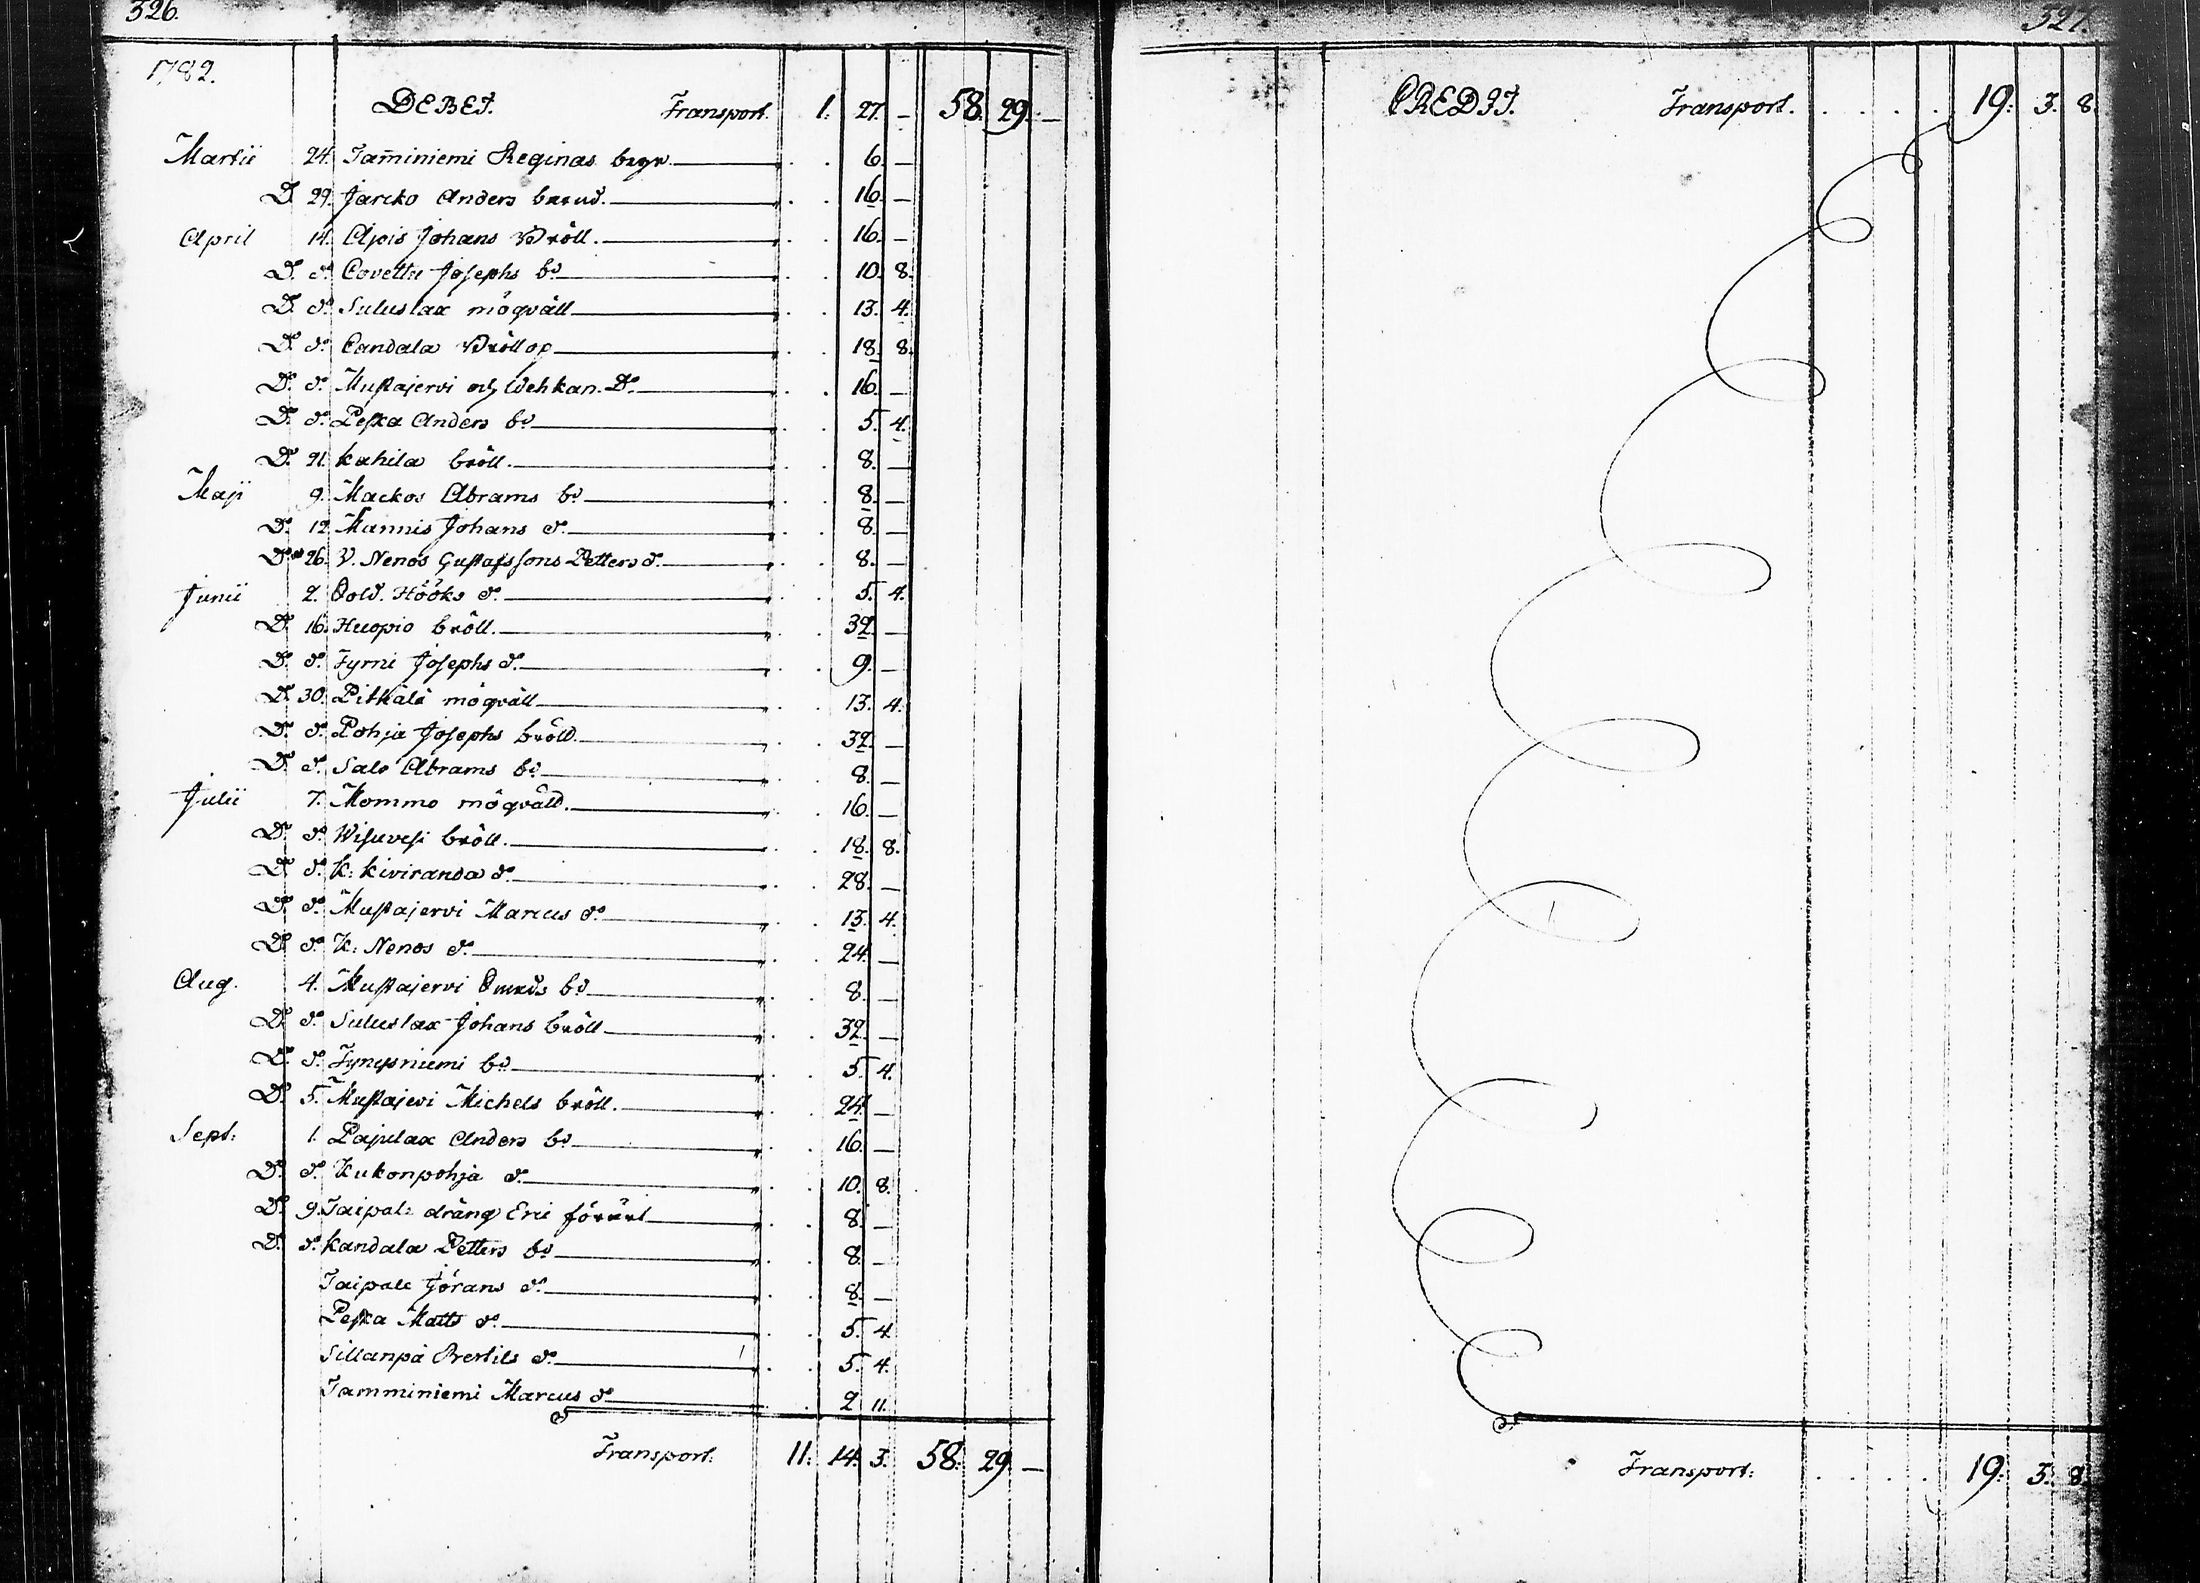 326.
1782.
DEBET. Transport. 1. 27. — 58. 29. —
Martii 24. Tam̄iniemi Reginas begr. 6. —
D. 29. Jarcko Anders 16. —
April 14. Apis Johans Bröll. 16. —
D. d:o Covettu Josephs b:d 10. 8.
D. d:o Suluslax mögväll 13. 4.
D. d:o Candala Bröllop 18. 8.
D. d:o Mustajervi och Wehkan. D:o 16. —
D. d:o Peska Anders b:d 5. 4.
D. 21. Kahila bröll. 8. —
Maji 9. Mackos Abrams b:d 8. —
D. 12. Mannis Johans d:o 8. —
D. 26. V. Nenos Gustafssons Petters d:o 8. —
Junii 2. Hööks d:o 5. 4.
D. 16. Huopio bröll. 32. —
D. d:o Tyrni Josephs d:o 9. —
D. 30. Pitkälä mögväll 13. 4.
D. d:o Pohja Josephs bröll. 32. —
D. d:o Salo Abrams b:d 8. —
Julii 7. Mommo mögväll. 16. —
D. d:o Wisuvesi bröll. 18. 8.
D. d:o K: Kiviranda d:o 28. —
D. d:o Mustajervi Marcus d:o 13. 4.
D. d:o K: Nenos d:o 24. —
Aug. 4. Mustajervi b:d 8. —
D. d:o Suluslax Johans bröll 32. —
D. d:o Tynysniemi b:d 5. 4.
D. 5. Mustajevi Michels bröll. 24. —
Sept: 1. Pajulax Anders b:d 16. —
D. d:o Kukonpohja d:o 10. 8.
D. 9. Taipal: dräng Eric förärt 8. —
D. d:o Kandala Petters b:d 8. —
Taipale Jörans d:o 8. —
Peska Matts d:o 5. 4.
Sillanpä Bertils d:o 5. 4.
Tamminiemi Marcus d:o 2 11.
Transport. 11. 14. 3. 58. 29. —
327.
CREDIT. Transport. 19. 3. 8.
Transport: 19. 3. 8.